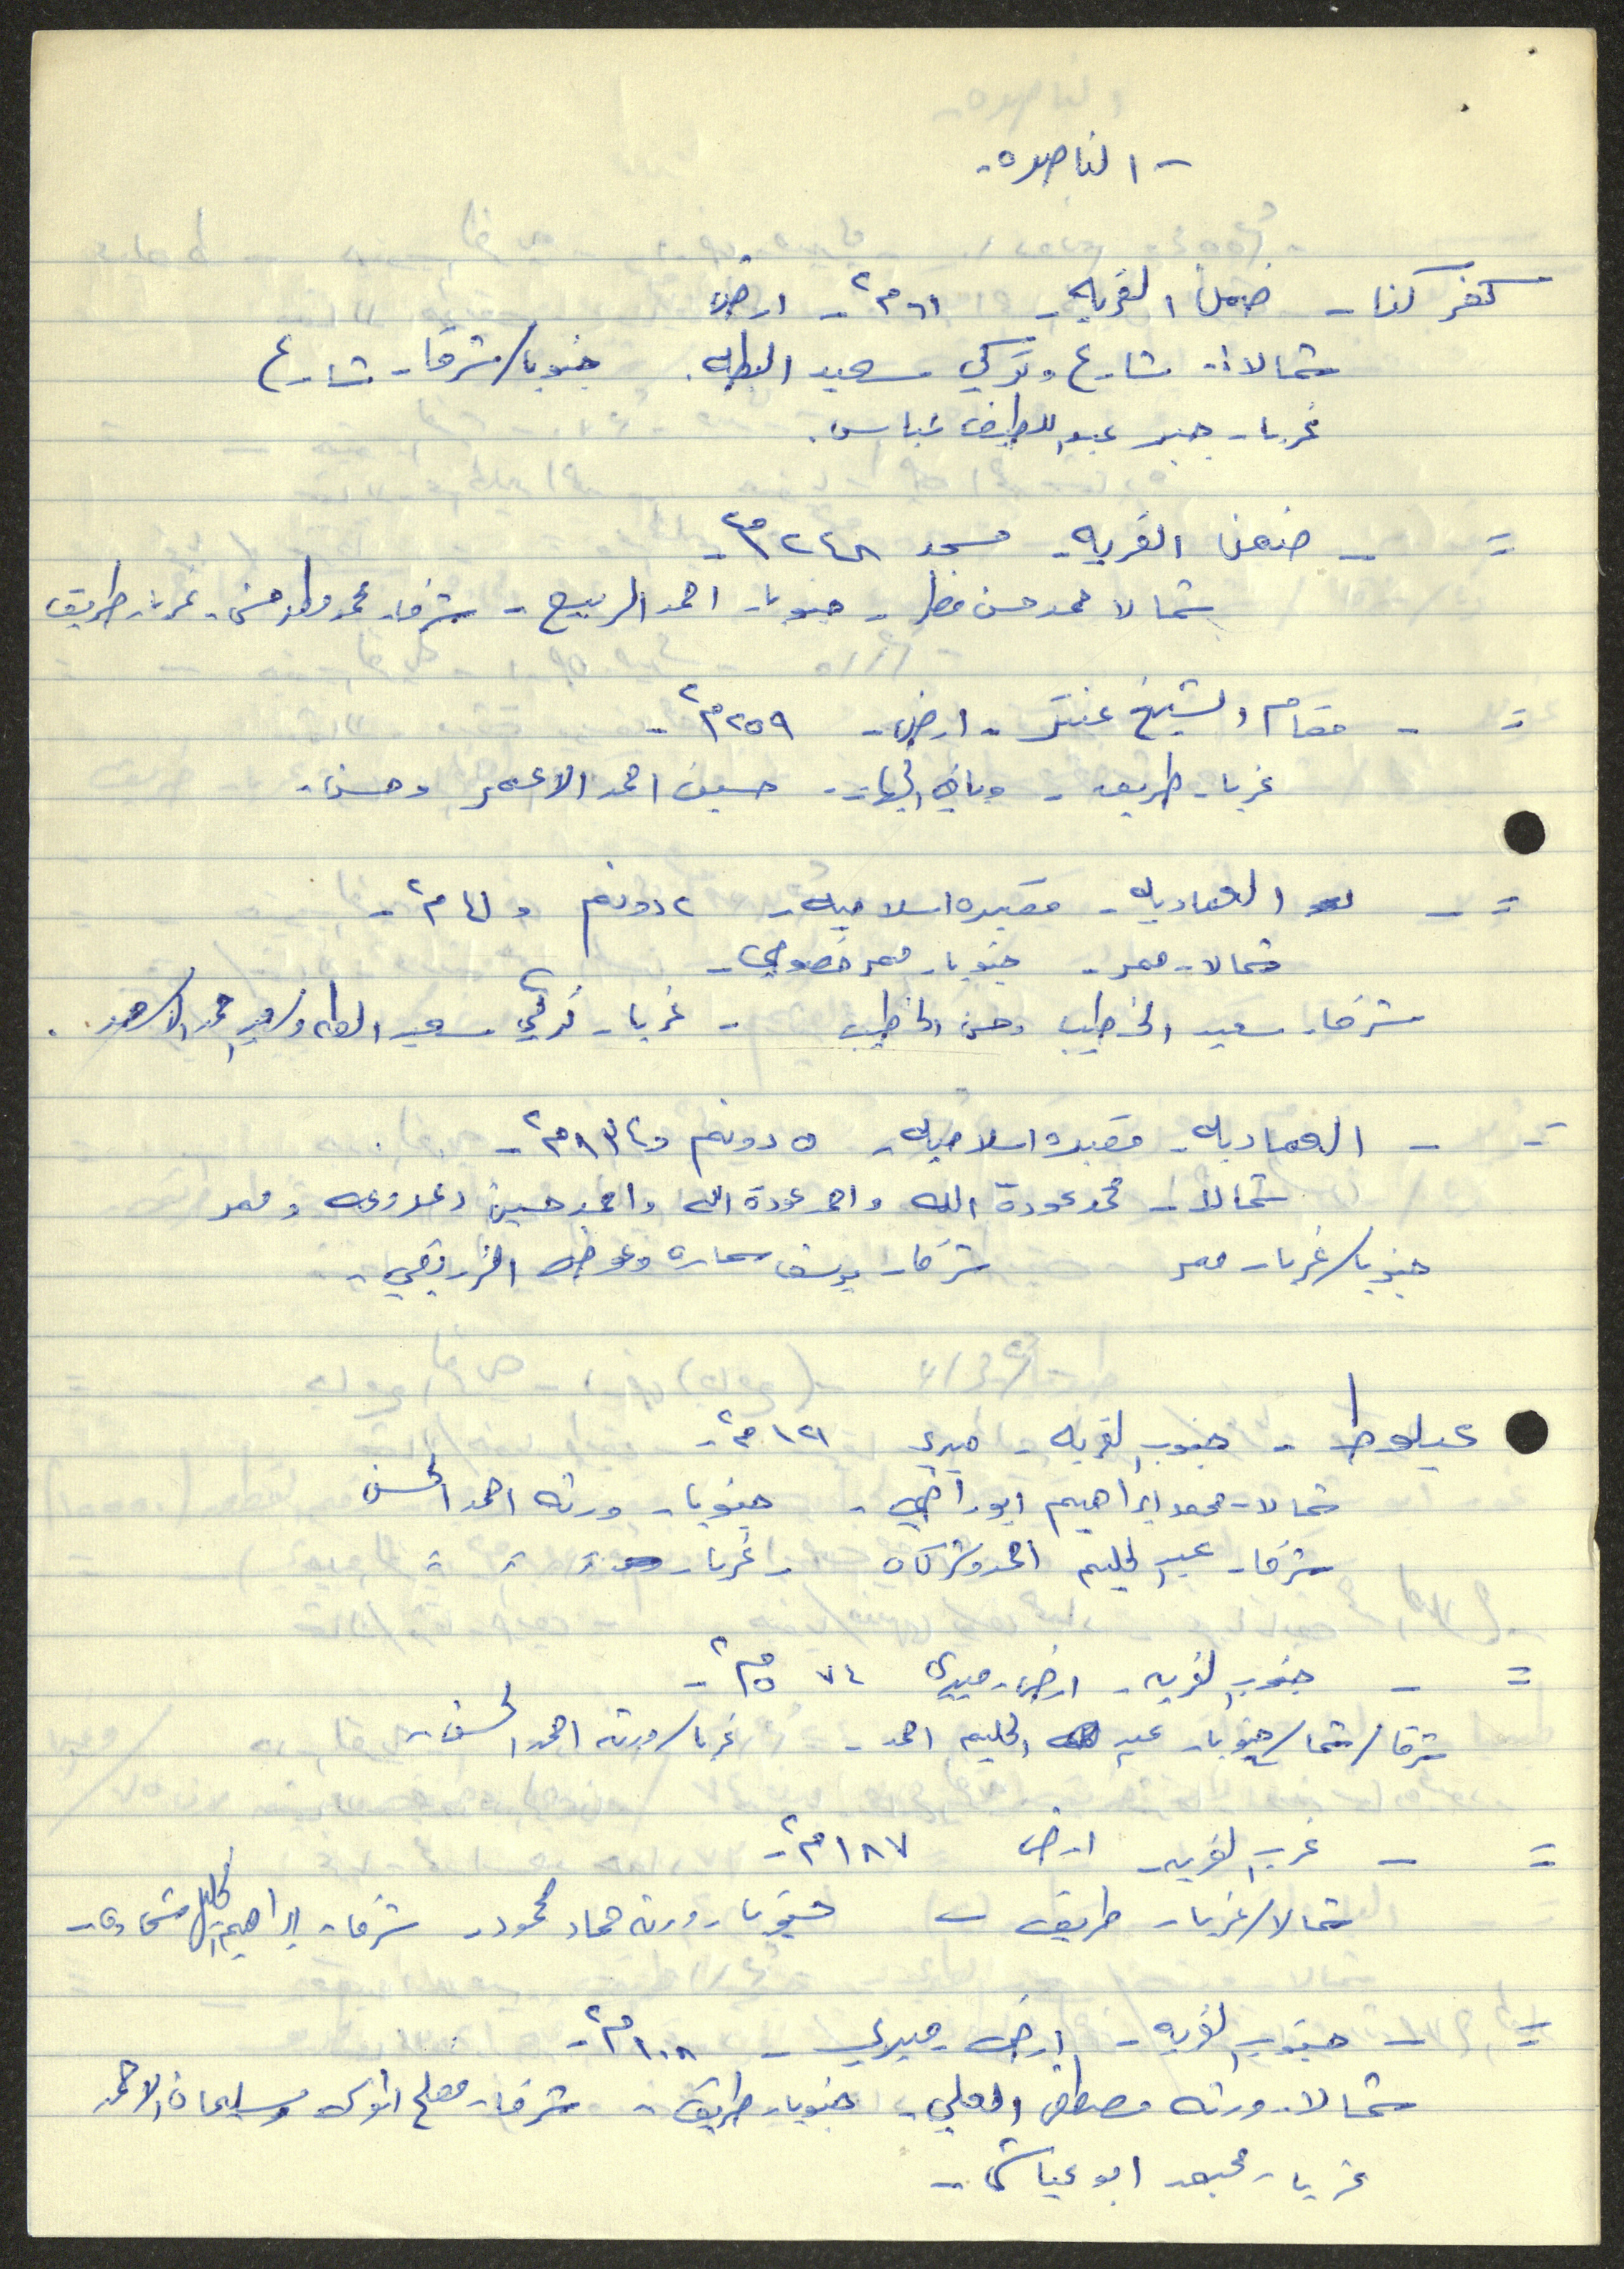 - الناصره -
كفر كنا - ضمن القريه - ٦١ م٢ - ارض
شمالا: شارع وتركي سعيد الطه. جنوبا/شرقا - شارع
غربا - جبر عبد اللطيف عباس.
= - ضمن القريه - مسجد ٢٤٨ م٢ -
شمالا محمد حسن - جنوبا - احمد الربيع - شرقا - محمد حسن - غربا - طريق
= - مقام الشيخ عنتر - ارض - ٢٥٩ م٢ -
غربا - طريق - وباقي الجهات - حسين احمد الاعمر وحسن -
= - العماديه - مقبره اسلاميه - ٢ دونم و م٢ -
شمالا - ممر - جنوبا - ممر خصوصي -
شرقا - سعيد الخطيب وحسن الخطيب - غربا - تركي سعيد الطه وسعيد محمد الاسعد.
= - العماديه - مقبره اسلاميه - ٥ دونم و م٢ -
شمالا - محمد عودة الله واحمد عودة الله واحمد حسين وممر
جنوبا/غربا - ممر شرقا - يوسف سماره وعوض
عيلوط - جنوب القريه - ميري ١٢١ م٢ -
شمالا - محمد ابراهيم ابو راضي - جنوبا - ورثه احمد الحسن
شرقا - عبد الحليم احمد وشركاه - غربا - = = =
= - جنوب القريه - ارض - ميري ٧٤ م٢ -
شرقا/شمالا/جنوبا - عبد الحليم احمد - غربا/ورثه احمد الحسن -
= - غرب القريه - ارض ١٨٧ م٢ -
شمالا/غربا - طريق - جنوبا - ورثه حماد محمود - شرقا - ابراهيم
= - جنوب القريه - ارض - ميري - ١٠٨ م٢ -
شمالا - ورثه مصطفى العلي - جنوبا - طريق - شرقا - مصلح وسليمان الاحمد
غربا - ابو عياش -